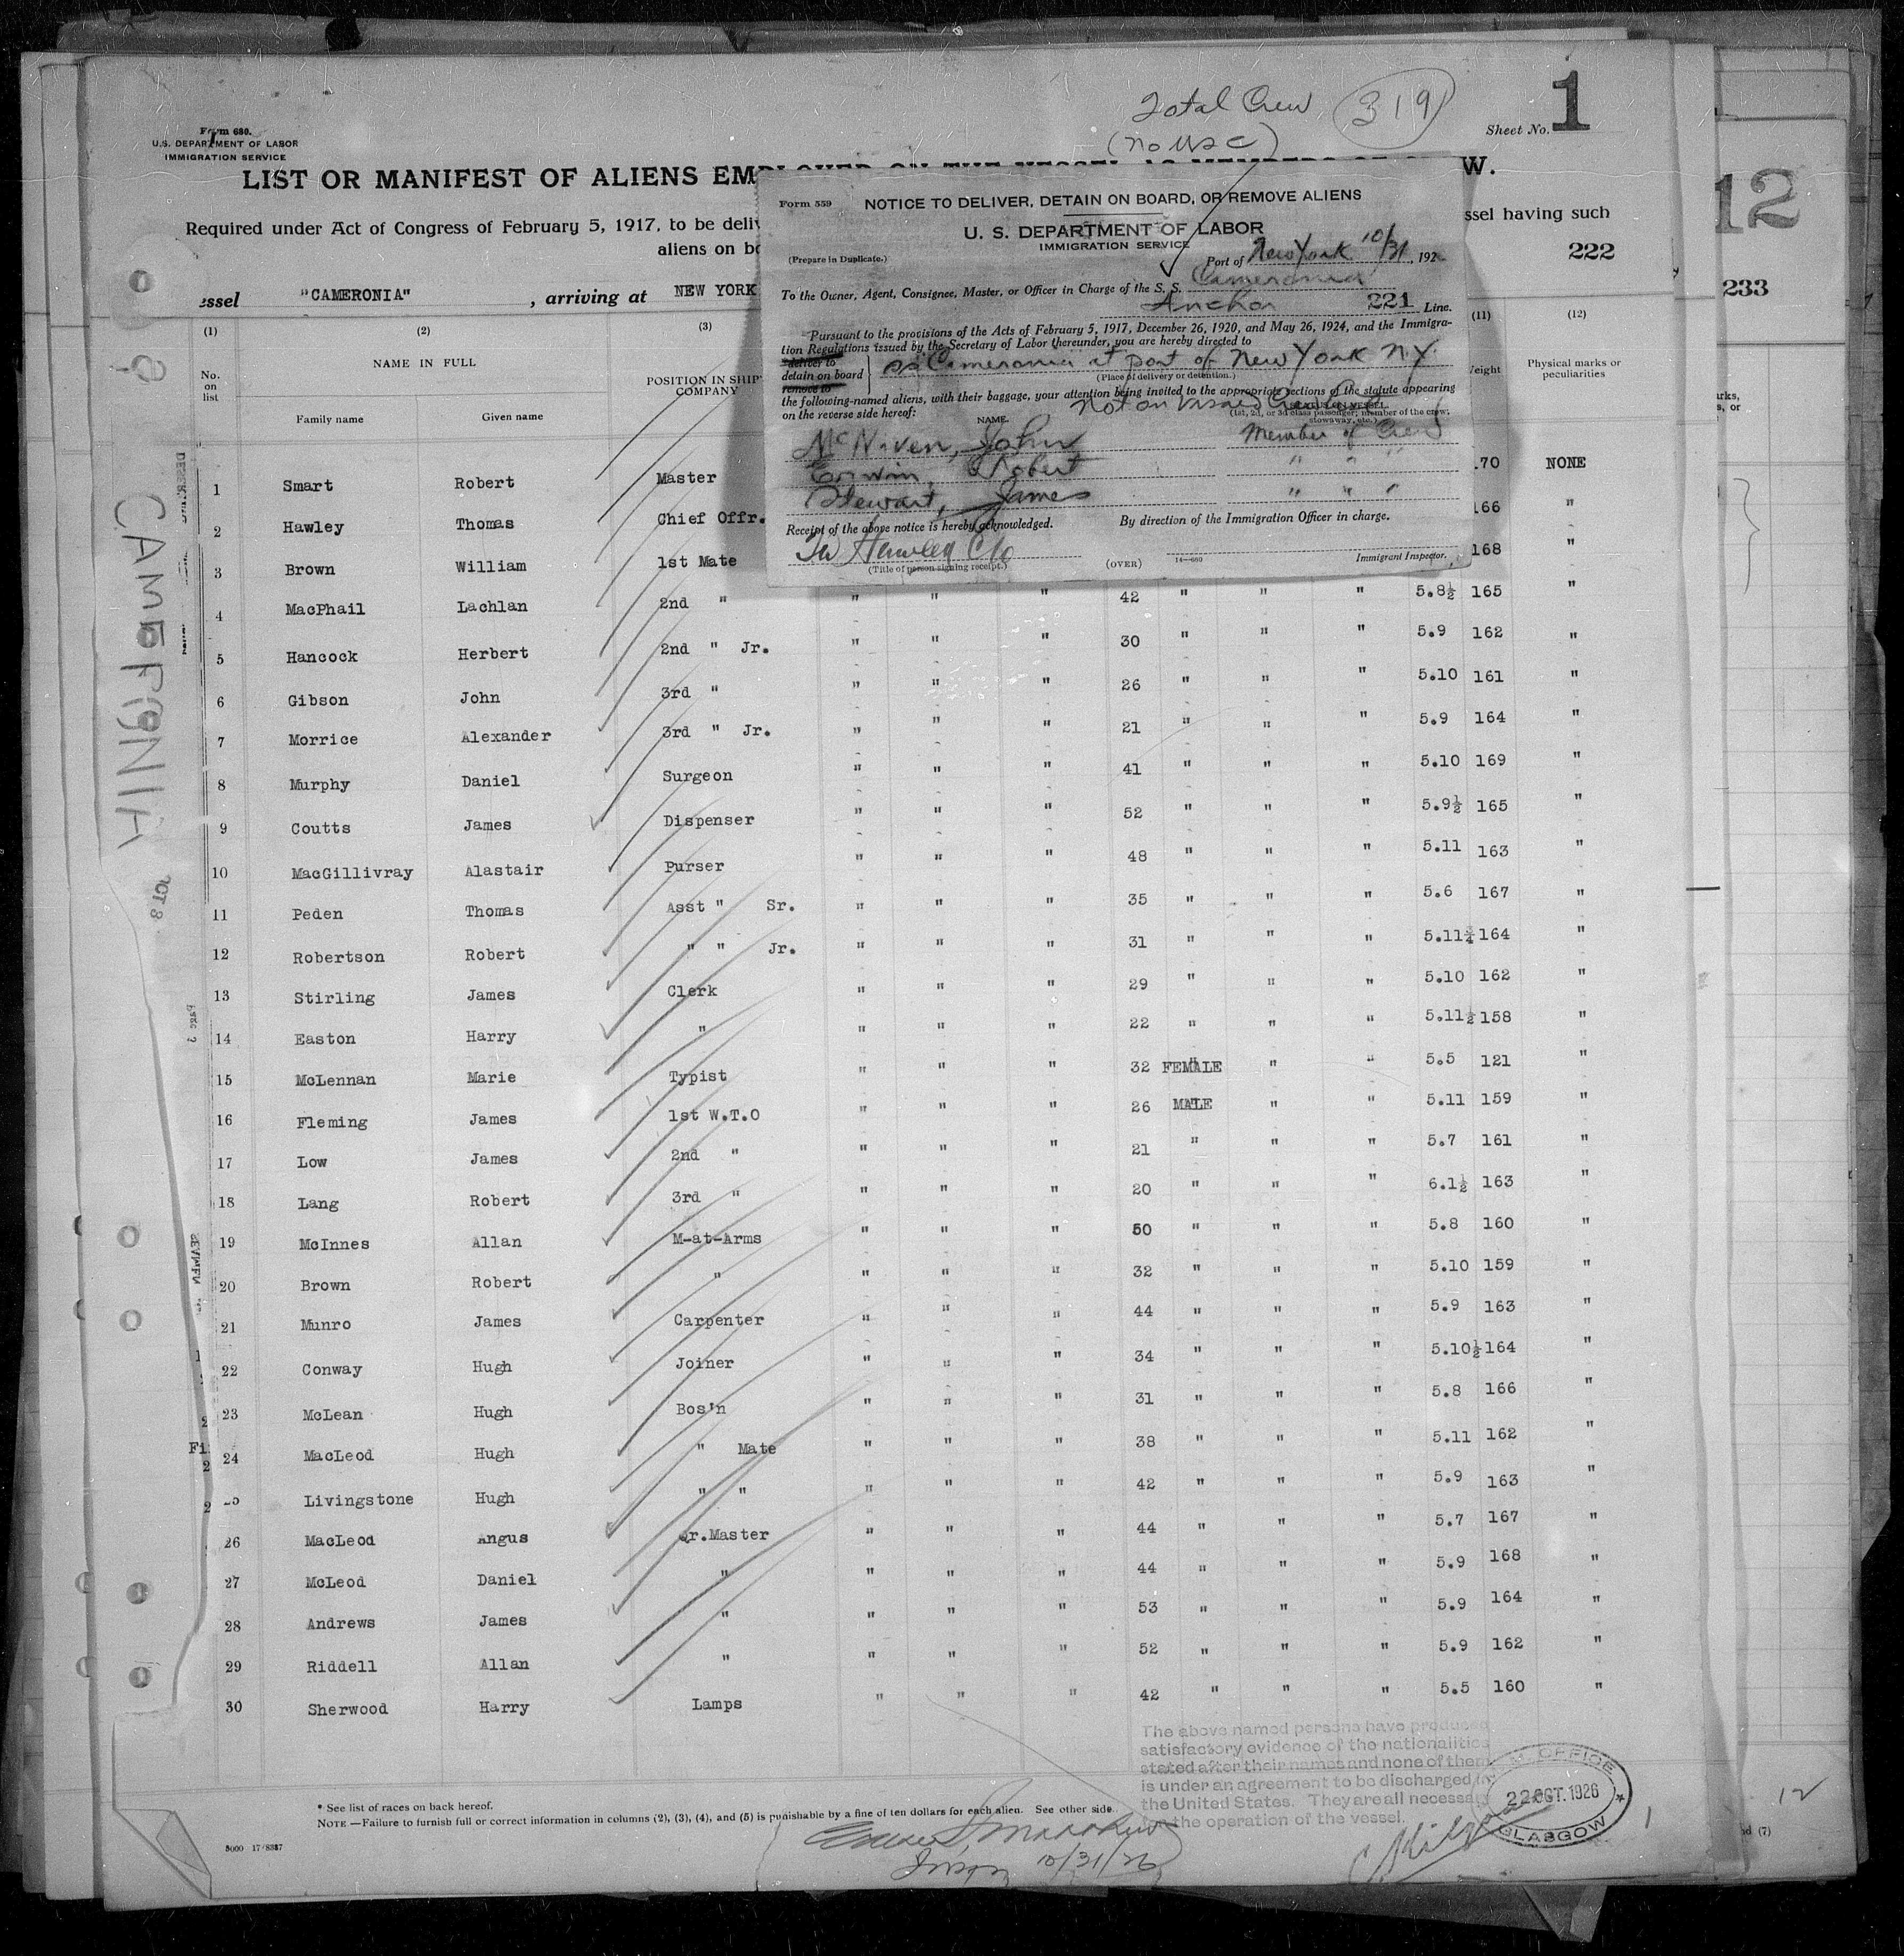 Total Crew 319
(no USC)
Sheet No. 1
Form 680.
U.S. DEPARTMENT OF LABOR
IMMIGRATION SERVICE
LIST OR MANIFEST OF ALIENS EM W.
Required under Act of Congress of February 5, 1917, to be deliv ssel having such
aliens on bo
222
12
233
essel "CAMERONIA" , arriving at NEW YORK
Form 559
NOTICE TO DELIVER, DETAIN ON BOARD, OR REMOVE ALIENS
U. S. DEPARTMENT OF LABOR
IMMIGRATION SERVICE
(Prepare in Duplicate.)
Port of New York 10/31, 192
To the Owner, Agent, Consignee, Master, or Officer in Charge of the S. S. Cameronia
Anchor 221 Line.
Pursuant to the provisions of the Acts of February 5, 1917, December 26, 1920, and May 26, 1924, and the Immigra-
tion Regulations issued by the Secretary of Labor thereunder, you are hereby directed to
deliver to
detain on board
remove to
ss Cameronia at port of New York N.Y.
(Place of delivery or detention.)
the following-named aliens, with their baggage, your attention being invited to the appropriate sections of the statute appearing
on the reverse side hereof:
Not on Visaed Crew List
NAME.
(1st, 2d, or 3d class passenger; member of the crew;
stowaway, etc.)
McNiven, John Member of Crew
Erwin, Robert " " "
Stewart, James " " "
Receipt of the above notice is hereby acknowledged. By direction of the Immigration Officer in charge.
TW Hawley C/o
(Title of person signing receipt.) (OVER) 14—680 Immigrant Inspector.
(1) (2) (3) (11) (12)
No. on list
NAME IN FULL
Family name Given name
POSITION IN SHIP'
COMPANY
Weight
Physical marks or
peculiarities
1 Smart Robert Master 170 NONE
2 Hawley Thomas Chief Offr. 166 "
3 Brown William 1st Mate 168 "
4 MacPhail Lachlan 2nd " " " " 42 " " " 5.8½ 165 "
5 Hancock Herbert 2nd " Jr. " " " 30 " " " 5.9 162 "
6 Gibson John 3rd " " " " 26 " " " 5.10 161 "
7 Morrice Alexander 3rd " Jr. " " " 21 " " " 5.9 164 "
8 Murphy Daniel Surgeon " " " 41 " " " 5.10 169 "
9 Coutts James Dispenser " " " 52 " " " 5.9½ 165 "
10 MacGillivray Alastair Purser " " " 48 " " " 5.11 163 "
11 Peden Thomas Asst " Sr. " " " 35 " " " 5.6 167 "
12 Robertson Robert " " Jr. " " " 31 " " " 5.11¾ 164 "
13 Stirling James Clerk " " " 29 " " " 5.10 162 "
14 Easton Harry " " " " 22 " " " 5.11½ 158 "
15 McLennan Marie Typist " " " 32 FEMALE " " 5.5 121 "
16 Fleming James 1st W.T.O " " " 26 MALE " " 5.11 159 "
17 Low James 2nd " " " " 21 " " " 5.7 161 "
18 Lang Robert 3rd " " " " 20 " " " 6.1½ 163 "
19 McInnes Allan M-at-Arms " " " 50 " " " 5.8 160 "
20 Brown Robert " " " " 32 " " " 5.10 159 "
21 Munro James Carpenter " " " 44 " " " 5.9 163 "
22 Conway Hugh Joiner " " " 34 " " " 5.10½ 164 "
23 McLean Hugh Bos'n " " " 31 " " " 5.8 166 "
24 MacLeod Hugh " Mate " " " 38 " " " 5.11 162 "
25 Livingstone Hugh " " " " " 42 " " " 5.9 163 "
26 MacLeod Angus Qr.Master " " " 44 " " " 5.7 167 "
27 McLeod Daniel " " " " 44 " " " 5.9 168 "
28 Andrews James " " " " 53 " " " 5.9 164 "
29 Riddell Allan " " " " 52 " " " 5.9 162 "
30 Sherwood Harry Lamps " " " 42 " " " 5.5 160 "
CAMERONIA
OCT 8
The above named persons have produced
satisfactory evidence of the nationalities
stated after their names and none of them
is under an agreement to be discharged in
the United States. They are all necessary
for the operation of the vessel.
OFFICE
22 OCT. 1926
GLASGOW
* See list of races on back hereof.
NOTE.—Failure to furnish full or correct information in columns (2), (3), (4), and (5) is punishable by a fine of ten dollars for each alien. See other side.
10/31/26
12